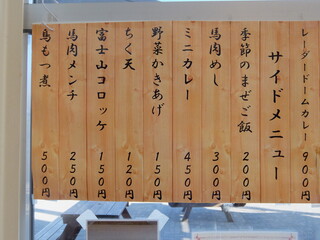 レーダードームカレー 900円
サイドメニュー
季節のまぜご飯 200円
馬肉めし 300円
ミニカレー 450円
野菜かきあげ 150円
ちく天 120円
富士山コロッケ 150円
馬肉メンチ 250円
鳥もつ煮 500円